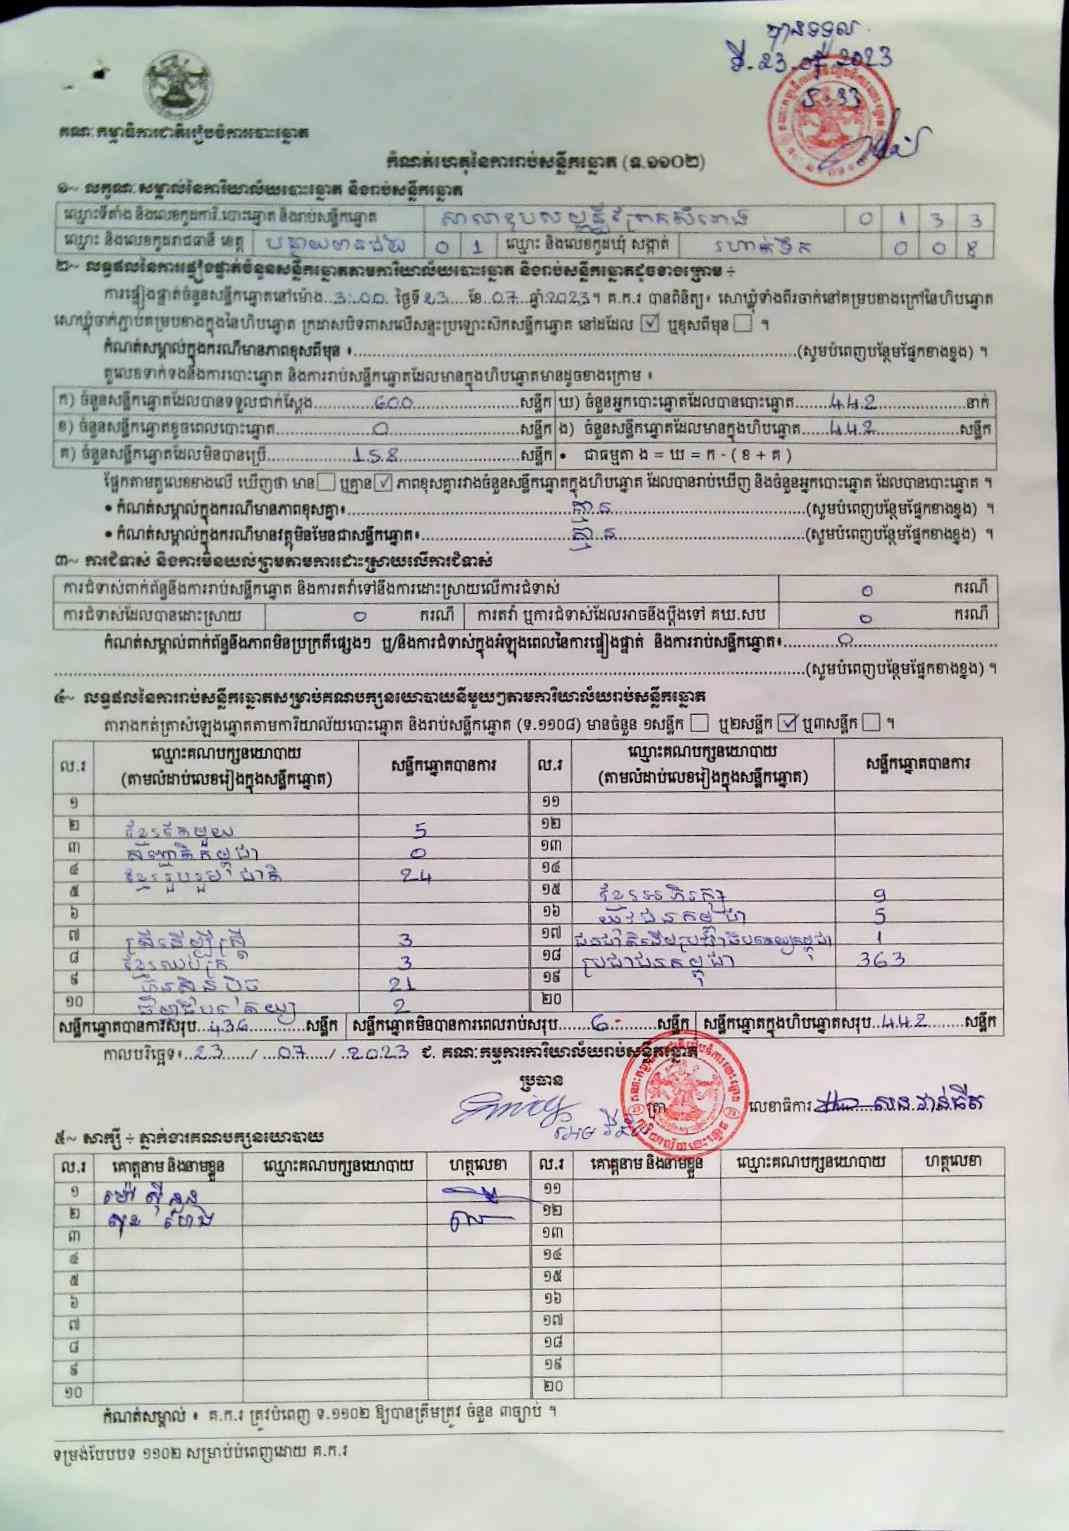 បានទទួល
ទី.23.07.2023
គណៈកម្មាធិការជាតិរៀបចំការបោះឆ្នោត
កំណត់ហេតុនៃការរាប់សន្លឹកឆ្នោត (ទ.១១០២)
១~ លក្ខណៈសម្គាល់នៃការិយាល័យបោះឆ្នោត និងរាប់សន្លឹកឆ្នោត
ឈ្មោះទីតាំង និងលេខកូដការិ.បោះឆ្នោត និងរាប់សន្លឹកឆ្នោត 0 1 3 3
ឈ្មោះ និងលេខកូដរាជធានី ខេត្ត បន្ទាយមានជ័យ 0 1 ឈ្មោះ និងលេខកូដឃុំ សង្កាត់ រហាត់ទឹក 0 0 8
២~ លទ្ធផលនៃការផ្ទៀងផ្ទាត់ចំនួនសន្លឹកឆ្នោតតាមការិយាល័យបោះឆ្នោត និងរាប់សន្លឹកឆ្នោតដូចខាងក្រោម ÷
ការផ្ទៀងផ្ទាត់ចំនួនសន្លឹកឆ្នោតនៅម៉ោង..3:00. ថ្ងៃទី23....ខែ..07...ឆ្នាំ.2023។ គ.ក.រ បានពិនិត្យ៖ សោឃ្លុំទាំងពីរចាក់នៅគម្របខាងក្រៅនៃហិបឆ្នោត
សោឃ្លុំចាក់ភ្ជាប់គម្របខាងក្នុងនៃហិបឆ្នោត ក្រដាសបិទពាសលើសន្ទះប្រឡោះសិកសន្លឹកឆ្នោត នៅដដែល ☑ ឬខុសពីមុន ☐ ។
កំណត់សម្គាល់ក្នុងករណីមានភាពខុសពីមុន ៖..........(សូមបំពេញបន្ថែមផ្នែកខាងខ្នង) ។
តួលេខទាក់ទងនឹងការបោះឆ្នោត និងការរាប់សន្លឹកឆ្នោតដែលមានក្នុងហិបឆ្នោតមានដូចខាងក្រោម ៖
ក) ចំនួនសន្លឹកឆ្នោតដែលបានទទួលជាក់ស្តែង..........600..........សន្លឹក ឃ) ចំនួនអ្នកបោះឆ្នោតដែលបានបោះឆ្នោត..........442..........នាក់
ខ) ចំនួនសន្លឹកឆ្នោតខូចពេលបោះឆ្នោត..........0..........សន្លឹក ង) ចំនួនសន្លឹកឆ្នោតដែលមានក្នុងហិបឆ្នោត..........442..........សន្លឹក
គ) ចំនួនសន្លឹកឆ្នោតដែលមិនបានប្រើ..........158..........សន្លឹក • ជាធម្មតា ង = ឃ = ក - ( ខ + គ )
ផ្អែកតាមតួលេខខាងលើ ឃើញថា មាន ☐ ឬគ្មាន ☑ ភាពខុសគ្នារវាងចំនួនសន្លឹកឆ្នោតក្នុងហិបឆ្នោត ដែលបានរាប់ឃើញ និងចំនួនអ្នកបោះឆ្នោត ដែលបានបោះឆ្នោត ។
• កំណត់សម្គាល់ក្នុងករណីមានភាពខុសគ្នា៖..........គ្មាន..........(សូមបំពេញបន្ថែមផ្នែកខាងខ្នង) ។
• កំណត់សម្គាល់ក្នុងករណីមានវត្ថុមិនមែនជាសន្លឹកឆ្នោត៖..........គ្មាន..........(សូមបំពេញបន្ថែមផ្នែកខាងខ្នង) ។
៣~ ការជំទាស់ និងការមិនយល់ព្រមតាមការដោះស្រាយលើការជំទាស់
ការជំទាស់ពាក់ព័ន្ធនឹងការរាប់សន្លឹកឆ្នោត និងការតវ៉ាទៅនឹងការដោះស្រាយលើការជំទាស់ 0 ករណី
ការជំទាស់ដែលបានដោះស្រាយ 0 ករណី ការតវ៉ា ឬការជំទាស់ដែលអាចនឹងប្តឹងទៅ គឃ.សប 0 ករណី
កំណត់សម្គាល់ពាក់ព័ន្ធនឹងភាពមិនប្រក្រតីផ្សេងៗ ឬ/និងការជំទាស់ក្នុងអំឡុងពេលនៃការផ្ទៀងផ្ទាត់ និងការរាប់សន្លឹកឆ្នោត៖..........0..........
..........(សូមបំពេញបន្ថែមផ្នែកខាងខ្នង) ។
៤~ លទ្ធផលនៃការរាប់សន្លឹកឆ្នោតសម្រាប់គណបក្សនយោបាយនីមួយៗតាមការិយាល័យរាប់សន្លឹកឆ្នោត
តារាងកត់ត្រាសំឡេងឆ្នោតតាមការិយាល័យបោះឆ្នោត និងរាប់សន្លឹកឆ្នោត (ទ.១១០៨) មានចំនួន ១សន្លឹក ☐ ឬ២សន្លឹក ☑ ឬ៣សន្លឹក ☐ ។
ល.រ ឈ្មោះគណបក្សនយោបាយ (តាមលំដាប់លេខរៀងក្នុងសន្លឹកឆ្នោត) សន្លឹកឆ្នោតបានការ ល.រ ឈ្មោះគណបក្សនយោបាយ (តាមលំដាប់លេខរៀងក្នុងសន្លឹកឆ្នោត) សន្លឹកឆ្នោតបានការ
១ ១១
២ ខ្មែរតែមួយ 5 ១២
៣ សញ្ជាតិកម្ពុជា 0 ១៣
៤ ខ្មែររួបរួមជាតិ 24 ១៤
៥ ១៥ ខ្មែរអភិរក្ស 9
៦ ១៦ យុវជនកម្ពុជា 5
៧ ស្រីដើម្បីស្ត្រី 3 ១៧ ជនជាតិដើមប្រជាធិបតេយ្យកម្ពុជា 1
៨ ខ្មែរឈប់ក្រ 3 ១៨ ប្រជាជនកម្ពុជា 363
៩ ហ្វ៊ុនស៊ិនប៉ិច 21 ១៩
១០ 2 ២០
សន្លឹកឆ្នោតបានការសរុប..436..........សន្លឹក សន្លឹកឆ្នោតមិនបានការពេលរាប់សរុប......6..........សន្លឹក សន្លឹកឆ្នោតក្នុងហិបឆ្នោតសរុប..442..........សន្លឹក
កាលបរិច្ឆេទ៖..23....../...07...../..2023 ជ. គណៈកម្មការការិយាល័យរាប់សន្លឹកឆ្នោត
ប្រធាន
ត្រា
លេខាធិការ
៥~ សាក្សី ÷ ភ្នាក់ងារគណបក្សនយោបាយ
ល.រ គោត្តនាម និងនាមខ្លួន ឈ្មោះគណបក្សនយោបាយ ហត្ថលេខា ល.រ គោត្តនាម និងនាមខ្លួន ឈ្មោះគណបក្សនយោបាយ ហត្ថលេខា
១ ១១
២ ១២
៣ ១៣
៤ ១៤
៥ ១៥
៦ ១៦
៧ ១៧
៨ ១៨
៩ ១៩
១០ ២០
កំណត់សម្គាល់ ៖ គ.ក.រ ត្រូវបំពេញ ទ.១១០២ ឱ្យបានត្រឹមត្រូវ ចំនួន ៣ច្បាប់ ។
ទម្រង់បែបបទ ១១០២ សម្រាប់បំពេញដោយ គ.ក.រ